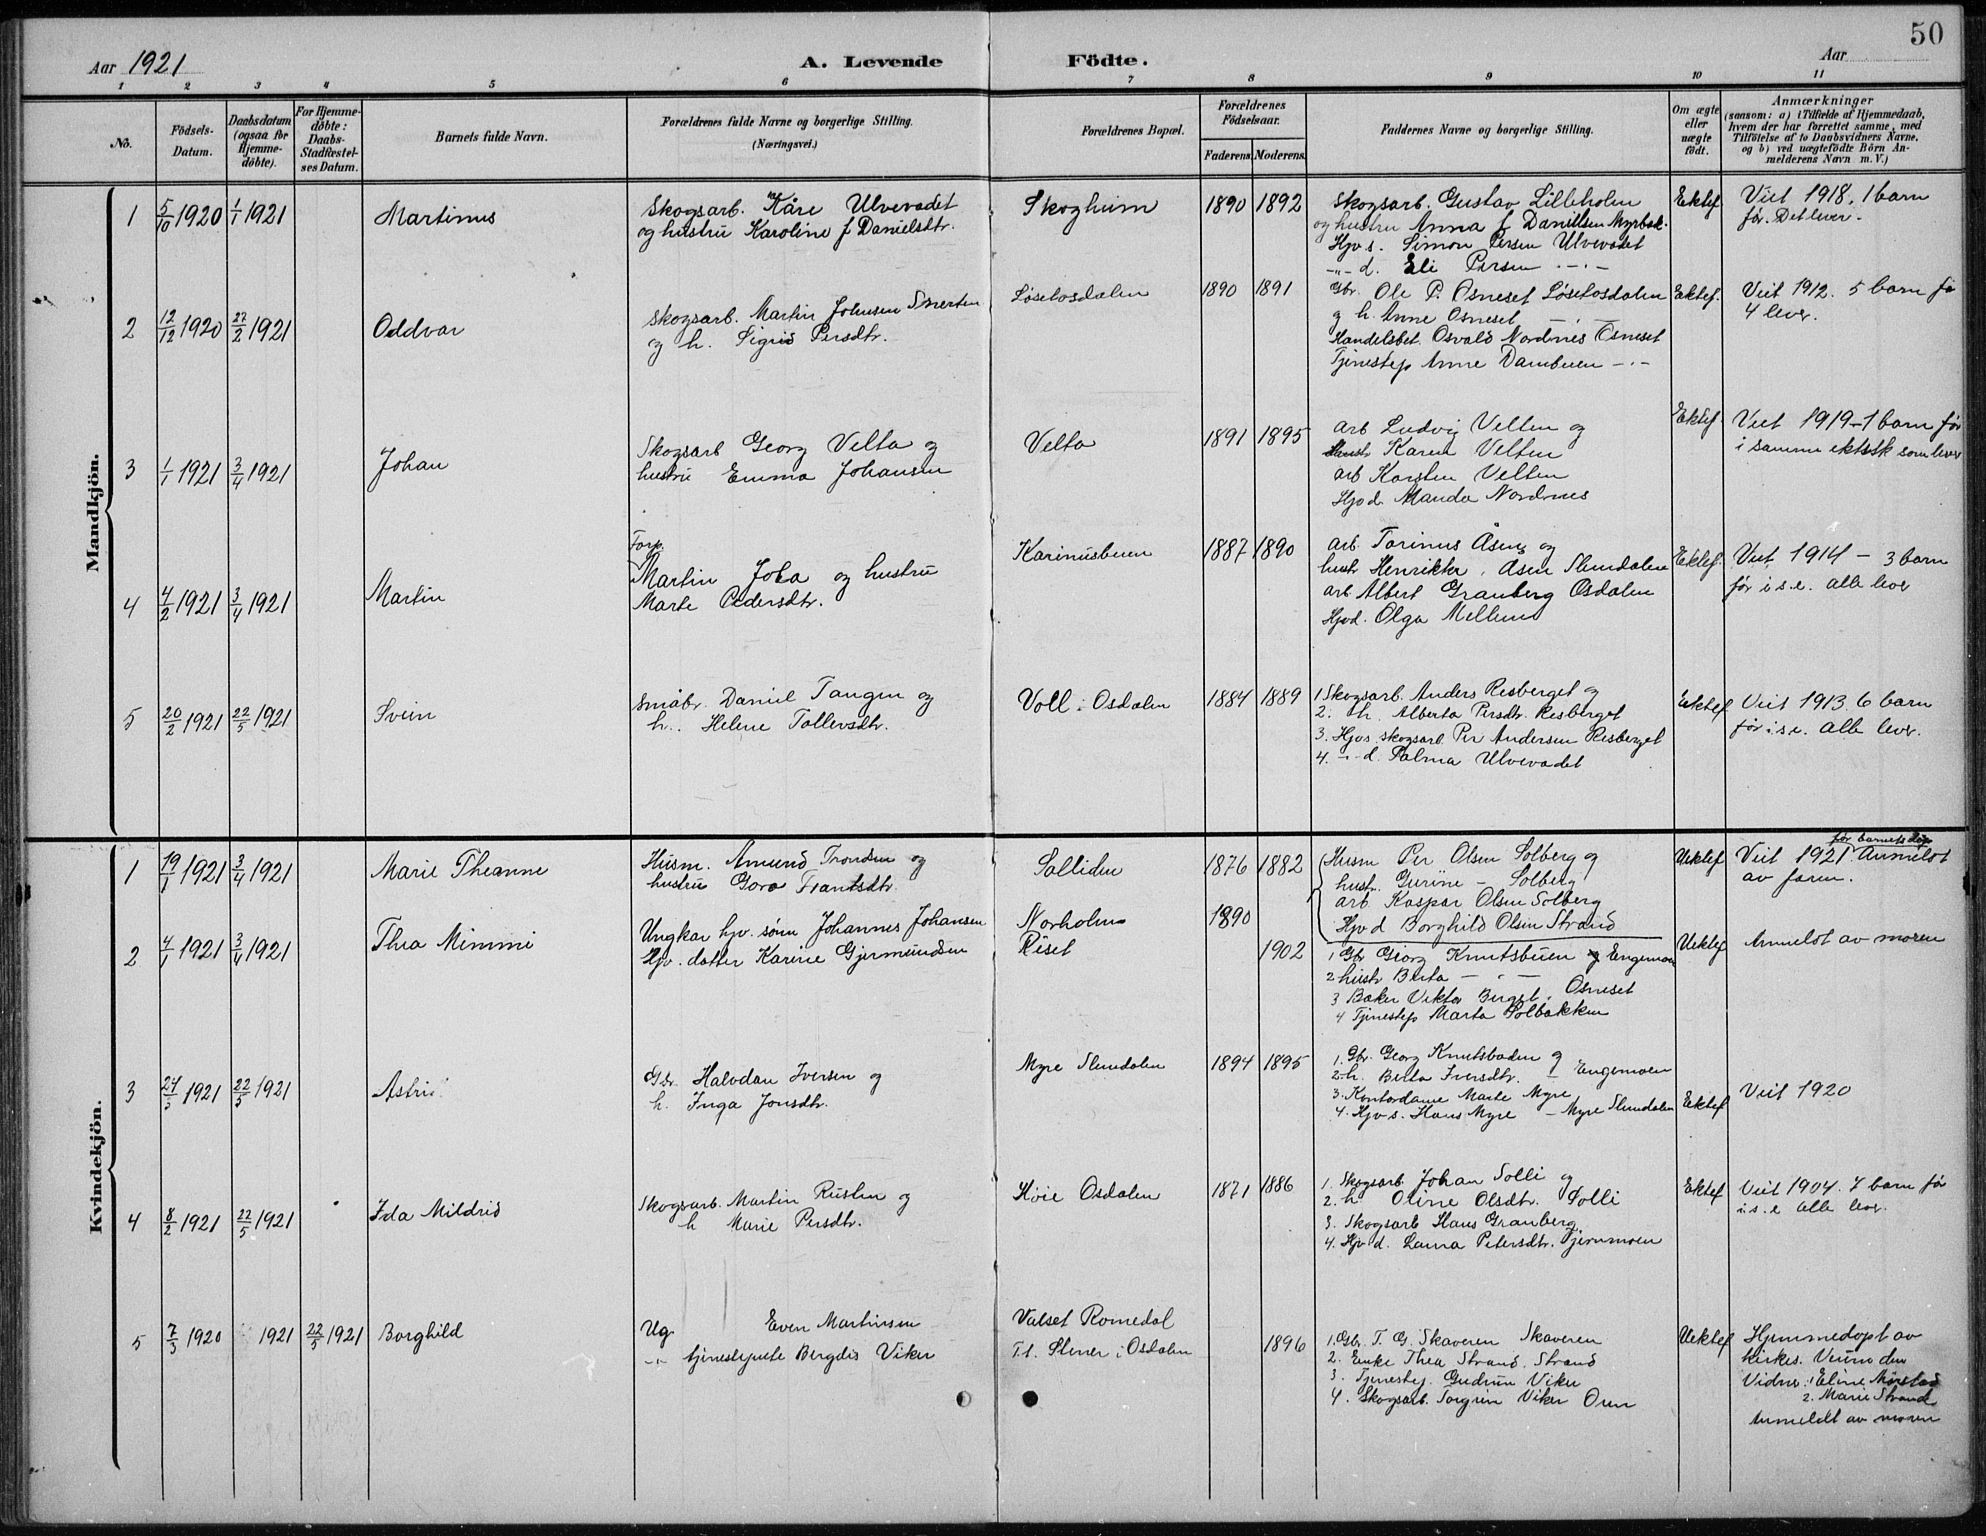 50
Aar 1921 A. Levende Födte. Aar
1 2 3 4 5 6 7 8 9 10 11
No.
Födsels-
Datum.
Daabsdatum
(ogsaa for
Hjemme-
döbte).
For Hjemme-
döbte:
Daabs-
Stadfæstel-
ses Datum.
Barnets fulde Navn.
Forældrenes fulde Navne og borgerlige Stilling.
(Næringsvei.)
Forældrenes Bopæl.
Forældrenes
Födselsaar.
Faderens. Moderens.
Faddernes Navne og borgerlige Stilling.
Om ægte
eller
uægte
födt.
Anmærkninger
(saasom: a) i Tilfælde af Hjemmedaab,
hvem der har forrettet samme, med
Tilföielse af to Daabsvidners Navne,
og b) ved uægtefödte Börn An-
melderens Navn m. V.)
Mandkjön.
1 5/10 1920 1/1 1921 Martinus
Skogsarb. Kåre Ulvevadet
og hustru Karoline f Danielsdtr.
Skogheim 1890 1892
Skogsarb. Gustav Lilleholen
og hustru Anna f Daniellsen Myrbak.
Hjv s. Simon Persen Ulvevadet
-"- d. Eli Persen -"-
Ektef. Viet 1918. 1 barn
før. Det lever.
2 12/12 1920 27/2 1921 Oddvar
Skogsarb. Martin Johnsen Snerten
og h. Sigrid Persdtr.
Løsetosdalen 1890 1891
Gbr. Ole P. Osneset Løsetosdalen
og h. Anne Osneset -"-
Handelsbet. Osvald Nordnes Osneset
Tjenestep Anne Dambuen -"-
Ektef. Viet 1912. 5 barn før
4 lever.
3 1/1 1921 3/4 1921 Johan
Skogsarb Georg Velta og
hustru Emma Johansen
Velta 1891 1895
arb Ludvig Velten og
hustr Karen Velten
arb Karsten Velten
Hjvd. Manda Nordnes
Ektef. Viet 1919 - 1 barn før
i samme ektsk som lever
4 4/2 1921 3/4 1921 Martin
Forp.
Martin Joha og hustru
Marte Pedersdtr.
Karinusbuen 1887 1890
arb. Torinus Åsen og
hust. Henrikke Åsen Slemdalen
arb Albert Granberg Osdalen
Hjvd. Olga Mellem
Ektef. Viet 1914 - 3 barn
før i s.e. alle lever
5 20/2 1921 22/5 1921 Svein
Småbr. Daniel Tangen og
h. Helene Tollevsdtr.
Voll i Osdalen 1884 1889
1 Skogsarb. Anders Risberget og
2. h. Alberta Persdtr. Risberget
3. Hjvs. skogsarb. Per Andersen Risberget
4. -"- d. Palma Ulvevadet
Ektef Viet 1913. 6 barn
før i s.e. Alle lever.
Kvindekjön.
1 19/1 1921 3/4 1921 Marie Theanne
Husm. Amund Trondsen og
hustru Gora Frantsdtr.
Solliden 1876 1882
Husm Per Olsen Solberg og
hustr. Gurine - Solberg
arb Kaspar Olsen Solberg
Hjvd Borghild Olsen Strand
Uektef før barnets dåp
Viet 1921. Anmeldt
av faren.
2 4/1 1921 3/4 1921 Thea Mimmi
Ungkar hjv. sønn Johannes Johansen
Hjv. datter Karine Gjermundsen
Norholm 1890
Riset 1902
1 Gbr Georg Knutsbuen og Engemoen
2 hustr Berta - " -
3 Baker Viktor Berget. Osneset
4 Tjenestep Marta Solbakken
Uektef Anmeldt av moren
3 1921 22/5 1921 Astrid
Gbr. Halvdan Iversen og
h. Inga Jonsdtr.
Myre Slemdalen 1894 1895
1. Gbr. Georg Knutsbaden og
2. h. Berta Iversdtr. - Engemoen
3. Kontordame Marte Myre
4. Hjv s. Hans Myre - Myre Slemdalen
Ektef Viet 1920
4 8/2 1921 22/5 1921 Ida Mildrid
Skogsarb. Martin Rusten og
h Marie Persdtr.
Høie Osdalen 1871 1886
1. Skogsarb. Johan Solli og
2. h. Oline Olsdtr. Solli
3. Skogsarb Hans Granberg.
4. Hjv d. Laura Petersdtr. Tjernmoen
Ektef Viet 1904. 7 barn før
i.s.e alle lever.
5 7/3 1920 1921 22/5 1921 Borghild
Ug Even Martinsen
-"- tjenestejente Bergdis Viker
Valset Romedal
T.t. Stener i Osdalen 1896
1. Gbr. T. G. Skaveren Skaveren
2. Enke Thea Strand. Strand
3. Tjenestej. Gudrun Viker
4. Skogsarb. Torgrim Viker Oren
Uektef Hjemmedøpt av
kirkes.
Vidner: 1 Eline Mørstad
2. Marie Strand
Anmeldt av moren